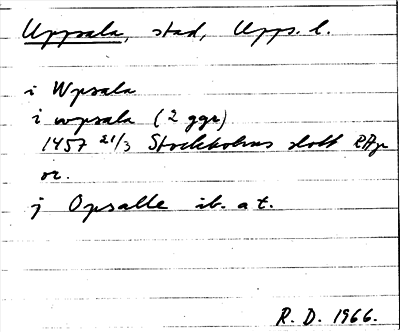 Uppsala, stad, Upps. l.
i Wpsala
i wpsala (2 ggr)
1457 21/3 Stockholms slott RAp
or.
j Opsalle ib. a t.
R. D. 1966.